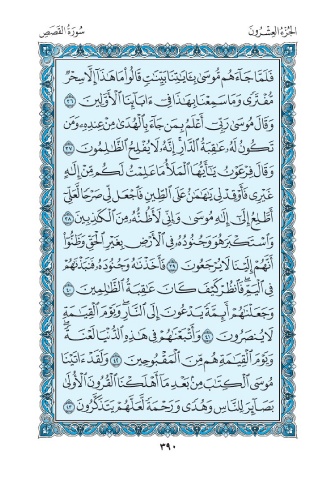 الجُزْءُ العِشْرُونَ
سُورَةُ القَصَصِ
فَلَمَّا جَآءَهُم مُّوسَىٰ بِـَٔايَٰتِنَا بَيِّنَٰتٍ قَالُوا۟ مَا هَٰذَآ إِلَّا سِحْرٌ
مُّفْتَرًى وَمَا سَمِعْنَا بِهَٰذَا فِىٓ ءَابَآئِنَا ٱلْأَوَّلِينَ ٣٦
وَقَالَ مُوسَىٰ رَبِّىٓ أَعْلَمُ بِمَن جَآءَ بِٱلْهُدَىٰ مِنْ عِندِهِۦ وَمَن
تَكُونُ لَهُۥ عَٰقِبَةُ ٱلدَّارِ إِنَّهُۥ لَا يُفْلِحُ ٱلظَّٰلِمُونَ ٣٧
وَقَالَ فِرْعَوْنُ يَٰٓأَيُّهَا ٱلْمَلَأُ مَا عَلِمْتُ لَكُم مِّنْ إِلَٰهٍ
غَيْرِى فَأَوْقِدْ لِى يَٰهَٰمَٰنُ عَلَى ٱلطِّينِ فَٱجْعَل لِّى صَرْحًا لَّعَلِّىٓ
أَطَّلِعُ إِلَىٰٓ إِلَٰهِ مُوسَىٰ وَإِنِّى لَأَظُنُّهُۥ مِنَ ٱلْكَٰذِبِينَ ٣٨
وَٱسْتَكْبَرَ هُوَ وَجُنُودُهُۥ فِى ٱلْأَرْضِ بِغَيْرِ ٱلْحَقِّ وَظَنُّوٓا۟
أَنَّهُمْ إِلَيْنَا لَا يُرْجَعُونَ ٣٩ فَأَخَذْنَٰهُ وَجُنُودَهُۥ فَنَبَذْنَٰهُمْ
فِى ٱلْيَمِّ فَٱنظُرْ كَيْفَ كَانَ عَٰقِبَةُ ٱلظَّٰلِمِينَ ٤٠
وَجَعَلْنَٰهُمْ أَئِمَّةً يَدْعُونَ إِلَى ٱلنَّارِ وَيَوْمَ ٱلْقِيَٰمَةِ
لَا يُنصَرُونَ ٤١ وَأَتْبَعْنَٰهُمْ فِى هَٰذِهِ ٱلدُّنْيَا لَعْنَةً
وَيَوْمَ ٱلْقِيَٰمَةِ هُم مِّنَ ٱلْمَقْبُوحِينَ ٤٢ وَلَقَدْ ءَاتَيْنَا
مُوسَى ٱلْكِتَٰبَ مِنۢ بَعْدِ مَآ أَهْلَكْنَا ٱلْقُرُونَ ٱلْأُولَىٰ
بَصَآئِرَ لِلنَّاسِ وَهُدًى وَرَحْمَةً لَّعَلَّهُمْ يَتَذَكَّرُونَ ٤٣
٣٩٠